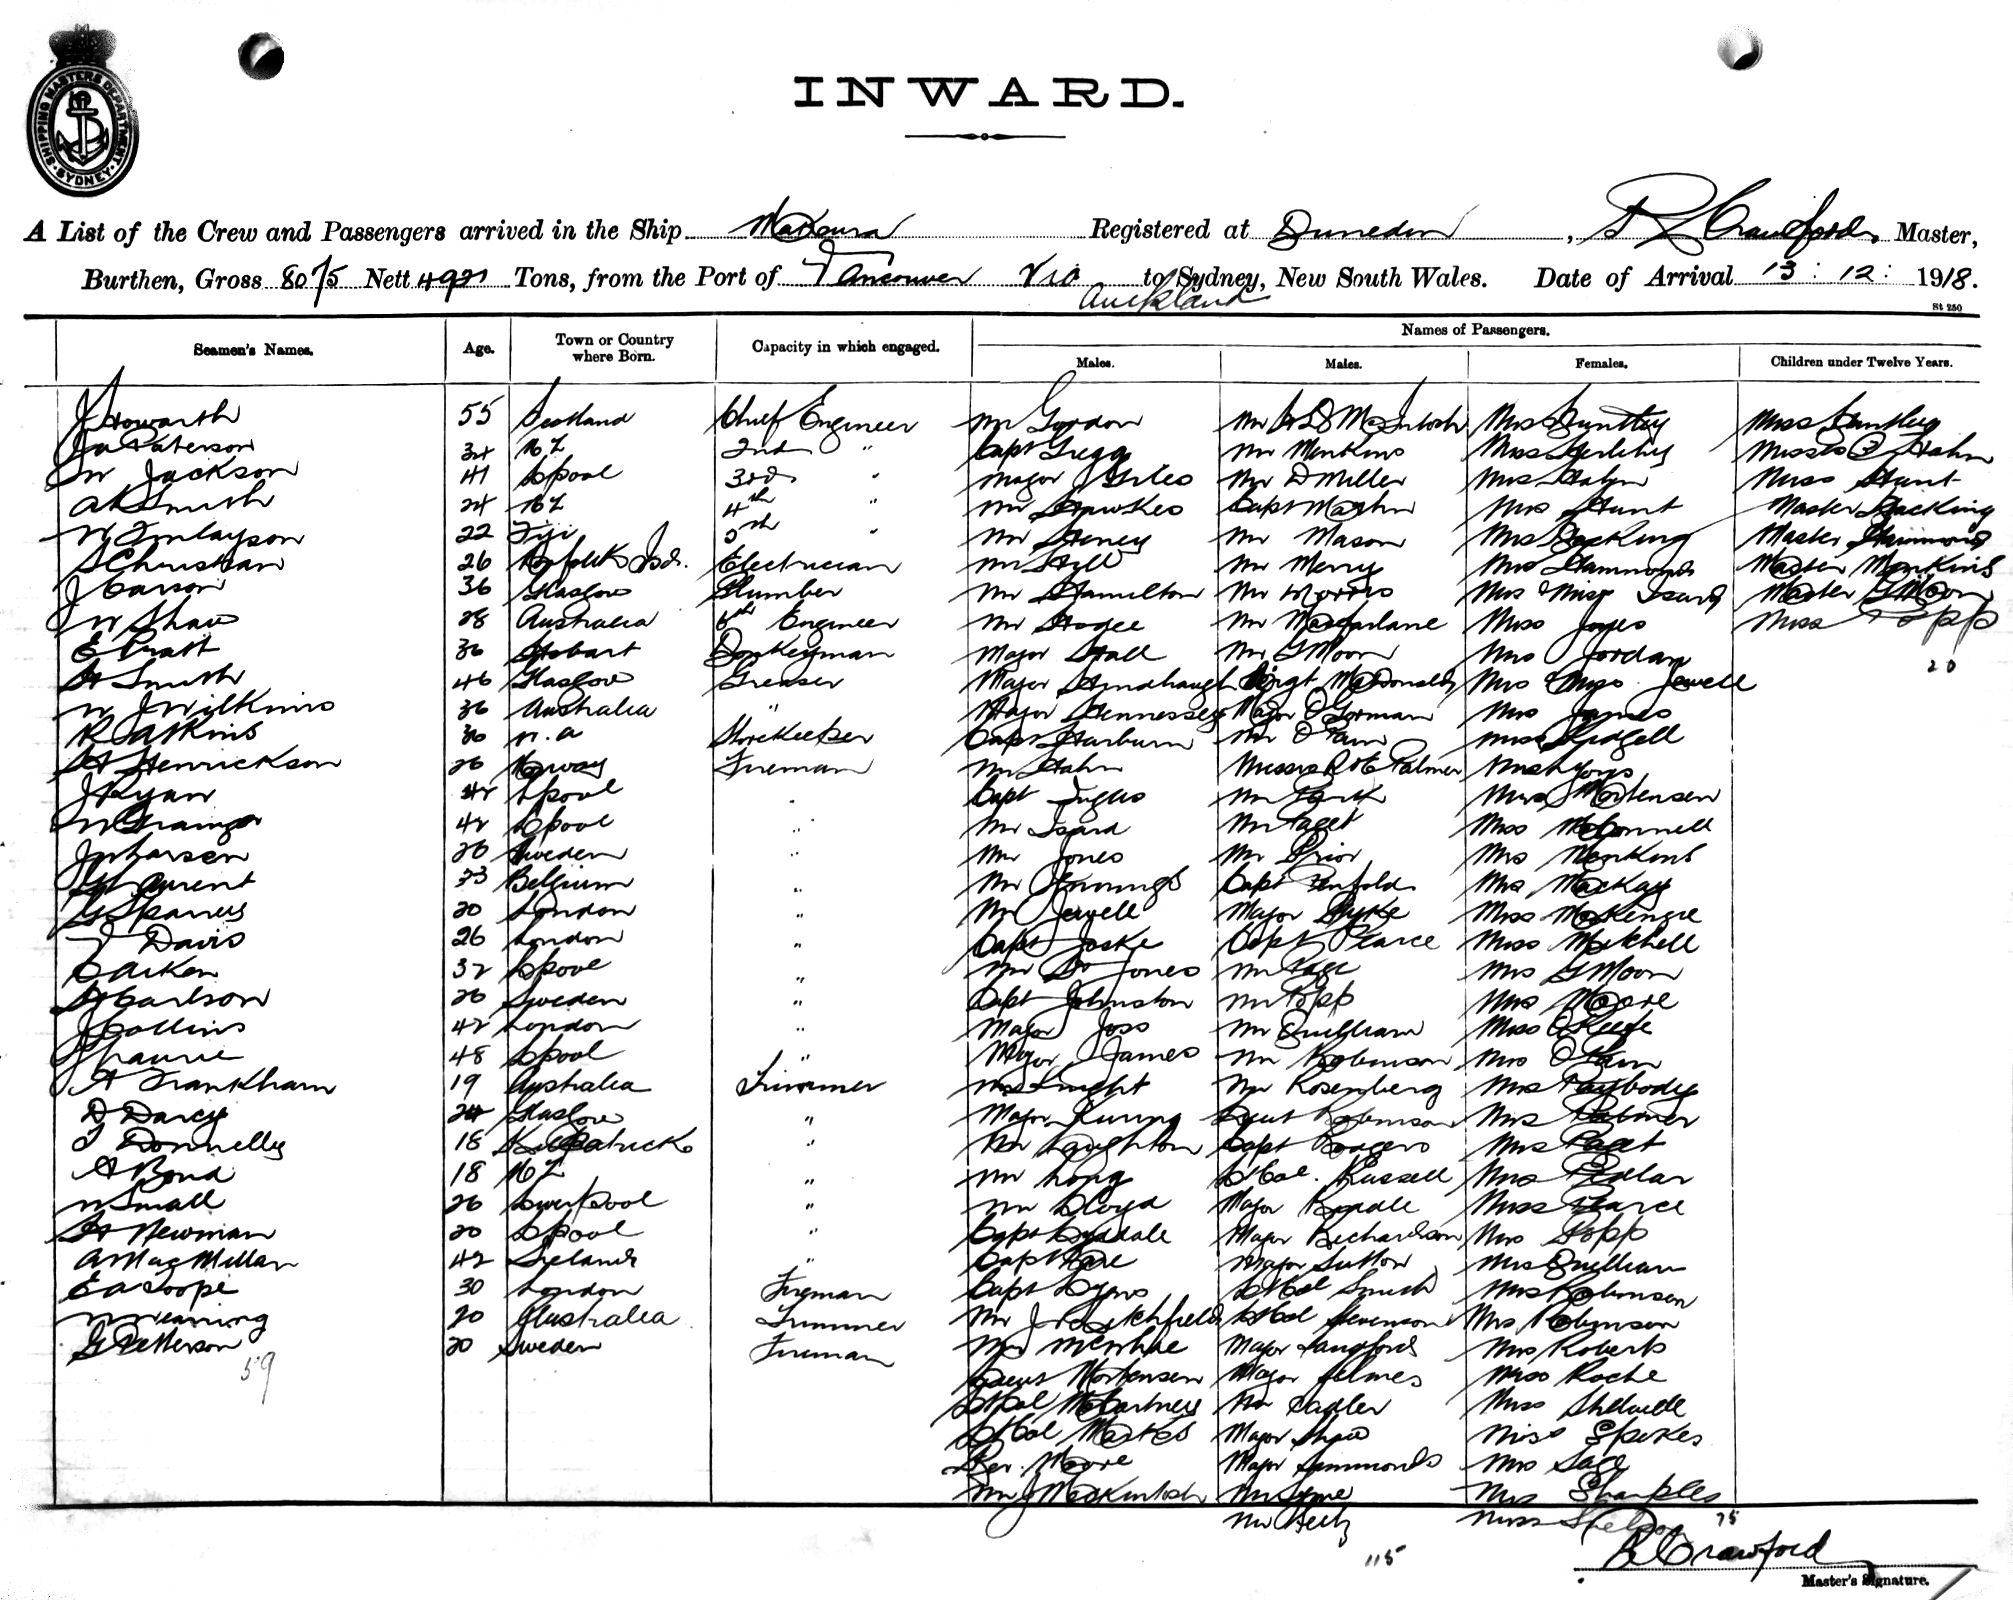 SHIPPING MASTERS DEPARTMENT SYDNEY
INWARD.
A List of the Crew and Passengers arrived in the Ship Makura Registered at Dunedin, R Crawford, Master,
Burthen, Gross 8075 Nett 4921 Tons, from the Port of Vancouver via Auckland to Sydney, New South Wales. Date of Arrival 13 : 12 : 1918.
St 250
Names of Passengers.
Seamen's Names. Age. Town or Country where Born. Capacity in which engaged. Males. Males. Females. Children under Twelve Years.
J Howarth 55 Scotland Chief Engineer Mr Gordon Mr McIntosh Mrs Huntley Miss Huntley
Jas Paterson 34 NZ 2nd " Capt Gregg Mr Menkins Miss Hahn
W Jackson 41 Lpool 3rd " Major Giles Mr D Miller Mrs Hahn Miss Hunt
A K Smith 24 NZ 4th " Mr Hawkes Capt Martin Mrs Hunt Master Hacking
W Finlayson 22 Fiji 5th " Mr Heney Mr Mason Mrs Hacking Master Hammond
S Christian 26 Norfolk Isd. Electrician Mr Hill Mr Merry Mrs Hammond Master Menkins
J Carson 36 Glasgow Plumber Mr Hamilton Mr Morris Mrs & Miss Isard Master G Moon
W Shaw 28 Australia 6th Engineer Mr Hogee Mr Macfarlane Miss Joyes Miss Topp
E Pratt 36 Hobart Donkeyman Major Hall Mr G Moon Mrs Jordan 20
H Smith 46 Glasgow Greaser Major Hindhaugh Sergt McDonald Mrs & Miss Jewell
W J Wilkins 36 Australia " Major Hennessey Major O'Gorman Mrs James
R Atkins 36 N.a Storekeeper Capt Harburn Mr O'Fain Miss Kidgell
H Henrickson 26 Norway Fireman Mr Hahn Messrs R & E Palmer Mrs Lyons
J Ryan 42 Lpool " Capt Inglis Mr Park Mrs Mortensen
W Grainger 42 Lpool " Mr Isard Mr Paget Miss McConnell
J Larsen 26 Sweden " Mr Jones Mr Prior Mrs Menkins
Laurent 23 Belgium " Mr Jennings Capt Penfold Mrs Mackay
G Spanus 20 London " Mr Jewell Major Pyke Miss McKenzie
J Davis 26 London " Capt Joske Capt Pearce Miss Mitchell
C Aiken 32 Lpool " Mr Jones Mr Page Mrs G Moon
H Carlson 26 Sweden " Capt Johnston Mr Popp Mrs Moore
J Collins 42 London " Major Joss Mr Quilliam Miss O'Keefe
48 Lpool " Major James Mr Robinson Mrs O'Fain
A Frankham 19 Australia Trimmer Mr Knight Mr Rosenberg Mrs Paybody
D Darcy 24 Glasgow " Major Kuring Lieut Robinson Mrs Palmer
T Donnelly 18 Kilpatrick " Mr Laughton Capt Rodgers Mrs Paget
A Bond 18 NZ " Mr Long Lt Col. Russell Mrs Pedlar
W Small 26 Liverpool " Mr Lloyd Major Riddle Miss Pearce
H Newman 20 Lpool " Capt Lyddale Major Richardson Mrs Popp
A MacMillan 42 Ireland " Capt Major Sutton Mrs Quilliam
E A Coope 30 London Fireman Capt Lyons Lt Col Smith Mrs Robinson
20 Australia Trimmer Mr J Litchfield Lt Col Stevenson Mrs Robinson
G Petterson 20 Sweden Fireman Mr McPhee Major Langford Mrs Roberts
59 Lieut Mortensen Major Holmes Miss Roche
Lt Col McCartney Mr Sadler Miss Shewell
Lt Col Marks Major Shaw Miss Spokes
Rev. Moore Major Simmonds Mrs Sale
Mr J MacKintosh Mr Syme Mrs Sharples
Mr Miss Shelson 75
115
R Crawford
Master's Signature.